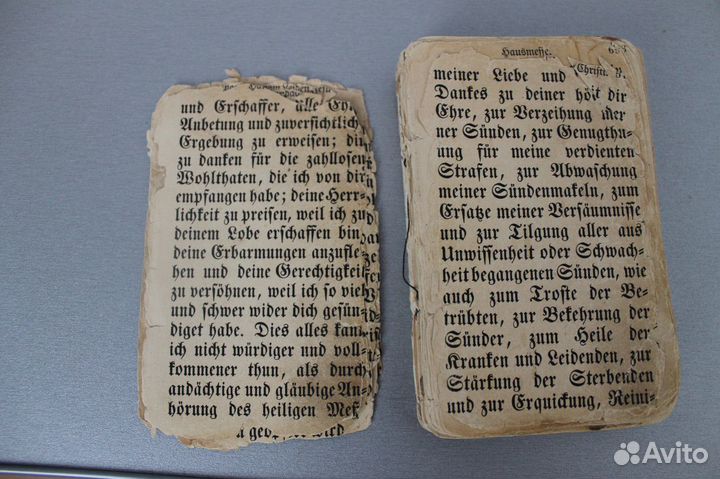 und Erschaffer, alle
Anbetung und zuversichtlich
Ergebung zu erweisen; di
zu danken für die zahllosen
Wohlthaten, die ich von dir
empfangen habe; deine Herr-
lichkeit zu preisen, weil ich zu
deinem Lobe erschaffen bin
deine Erbarmungen anzufle-
hen und deine Gerechtigkeit
zu versöhnen, weil ich so viel
und schwer wider dich gesün-
diget habe. Dies alles kann
ich nicht würdiger und voll-
kommener thun, als durch
andächtige und gläubige An-
hörung des heiligen Meß
Hausmesse.
Christi.
meiner Liebe und
Dankes zu deiner
dir
Ehre, zur Verzeihung
ner Sünden, zur Genugthu-
ung für meine verdienten
Strafen, zur Abwaschung
meiner Sündenmakeln, zum
Ersatze meiner Versäumnisse
und zur Tilgung aller aus
Unwissenheit oder Schwach-
heit begangenen Sünden, wie
auch zum Troste der Be-
trübten, zur Bekehrung der
Sünder, zum Heile der
Kranken und Leidenden, zur
Stärkung der Sterbenden
und zur Erquickung, Reini-
Avito